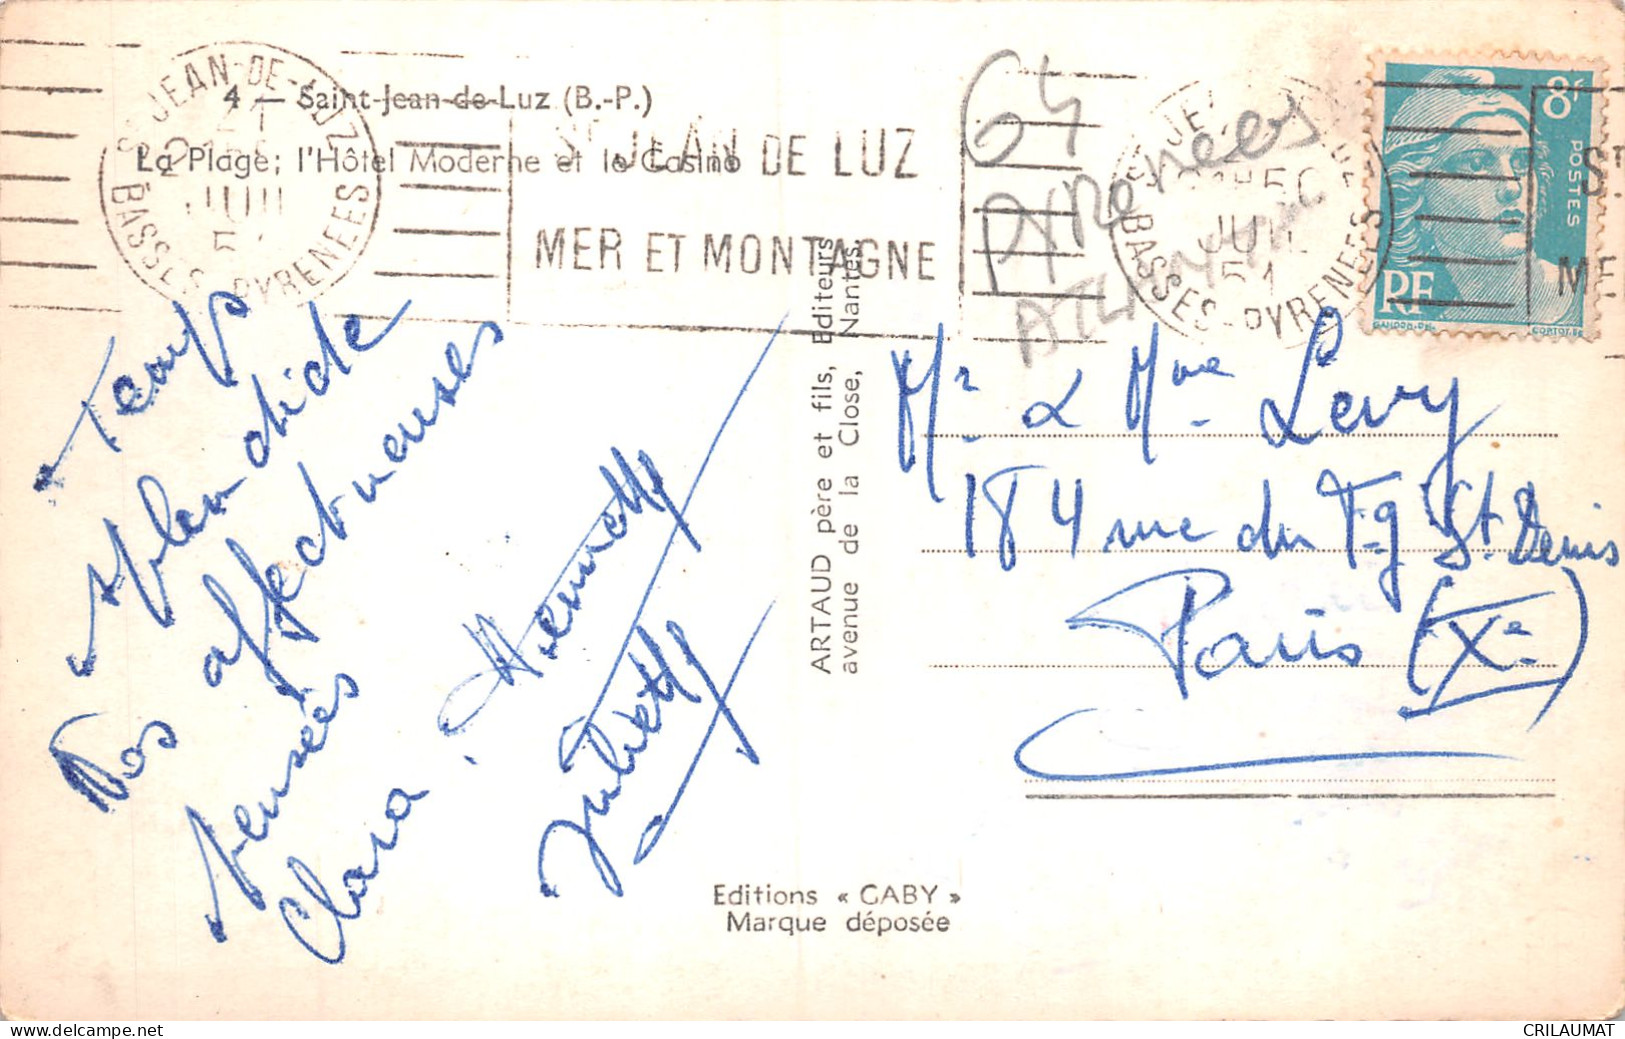 4 — Saint-Jean-de-Luz (B.-P.)
La Plage; l'Hôtel Moderne et le Casino
ST JEAN-DE-LUZ
BASSES-PYRENEES
JUIL
ST JEAN DE LUZ
MER ET MONTAGNE
64
PYReNées
ATLANTIQUES
BASSES-PYRENEES
JUIL
51
8F
POSTES
RF
GANDON-DEL.
CORTOT SC
ST.
ME
Temps
splendide
Nos affectueuses
pensées
Clara.
Juliette
ARTAUD père et fils, Editeurs
avenue de la Close, Nantes.
Mr & Mme Levy
184 rue du Fg St. Denis
Paris (Xe)
Editions « GABY »
Marque déposée
CRILAUMAT